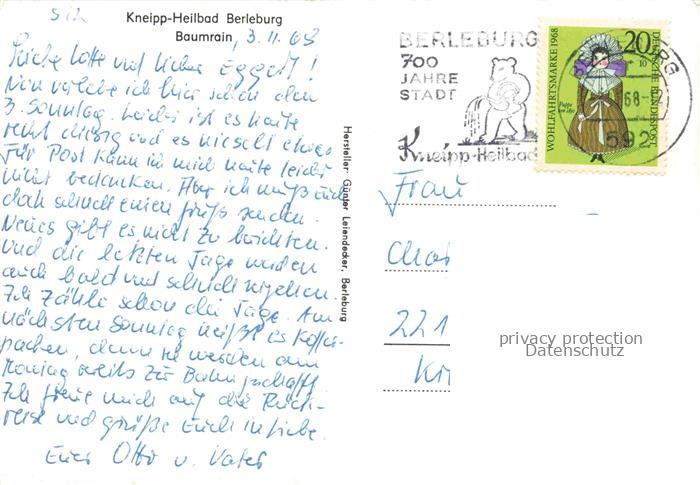 Kneipp-Heilbad Berleburg
Baumrain, 3.11.68
Liebe Lotte und lieber Eggert!
Nun verlebe ich hier schon den
3. Sonntag. Leider ist es heute
recht diesig und es nieselt etwas
Für Post kann ich mich heute leider
nicht bedanken. Aber ich muß Euch
doch schnell einen Gruß senden.
Neues gibt es nicht zu berichten.
Und die letzten Tage werden
auch bald und schnell vergehen.
Ich zähle schon die Tage. Am
nächsten Sonntag heißt es Koffer-
packen, denn sie werden am
Montag bereits zur Bahn geschafft
Ich freue mich auf die Rück-
reise und grüße Euch in Liebe.
Euer Otto u. Vater
Hersteller: Günter Leiendecker, Berleburg
BERLEBURG
700
JAHRE
STADT
Kneipp-Heilbad
WOHLFAHRTSMARKE 1968
20
+10
DEUTSCHE BUNDESPOST
592
Frau
221
privacy protection
Datenschutz